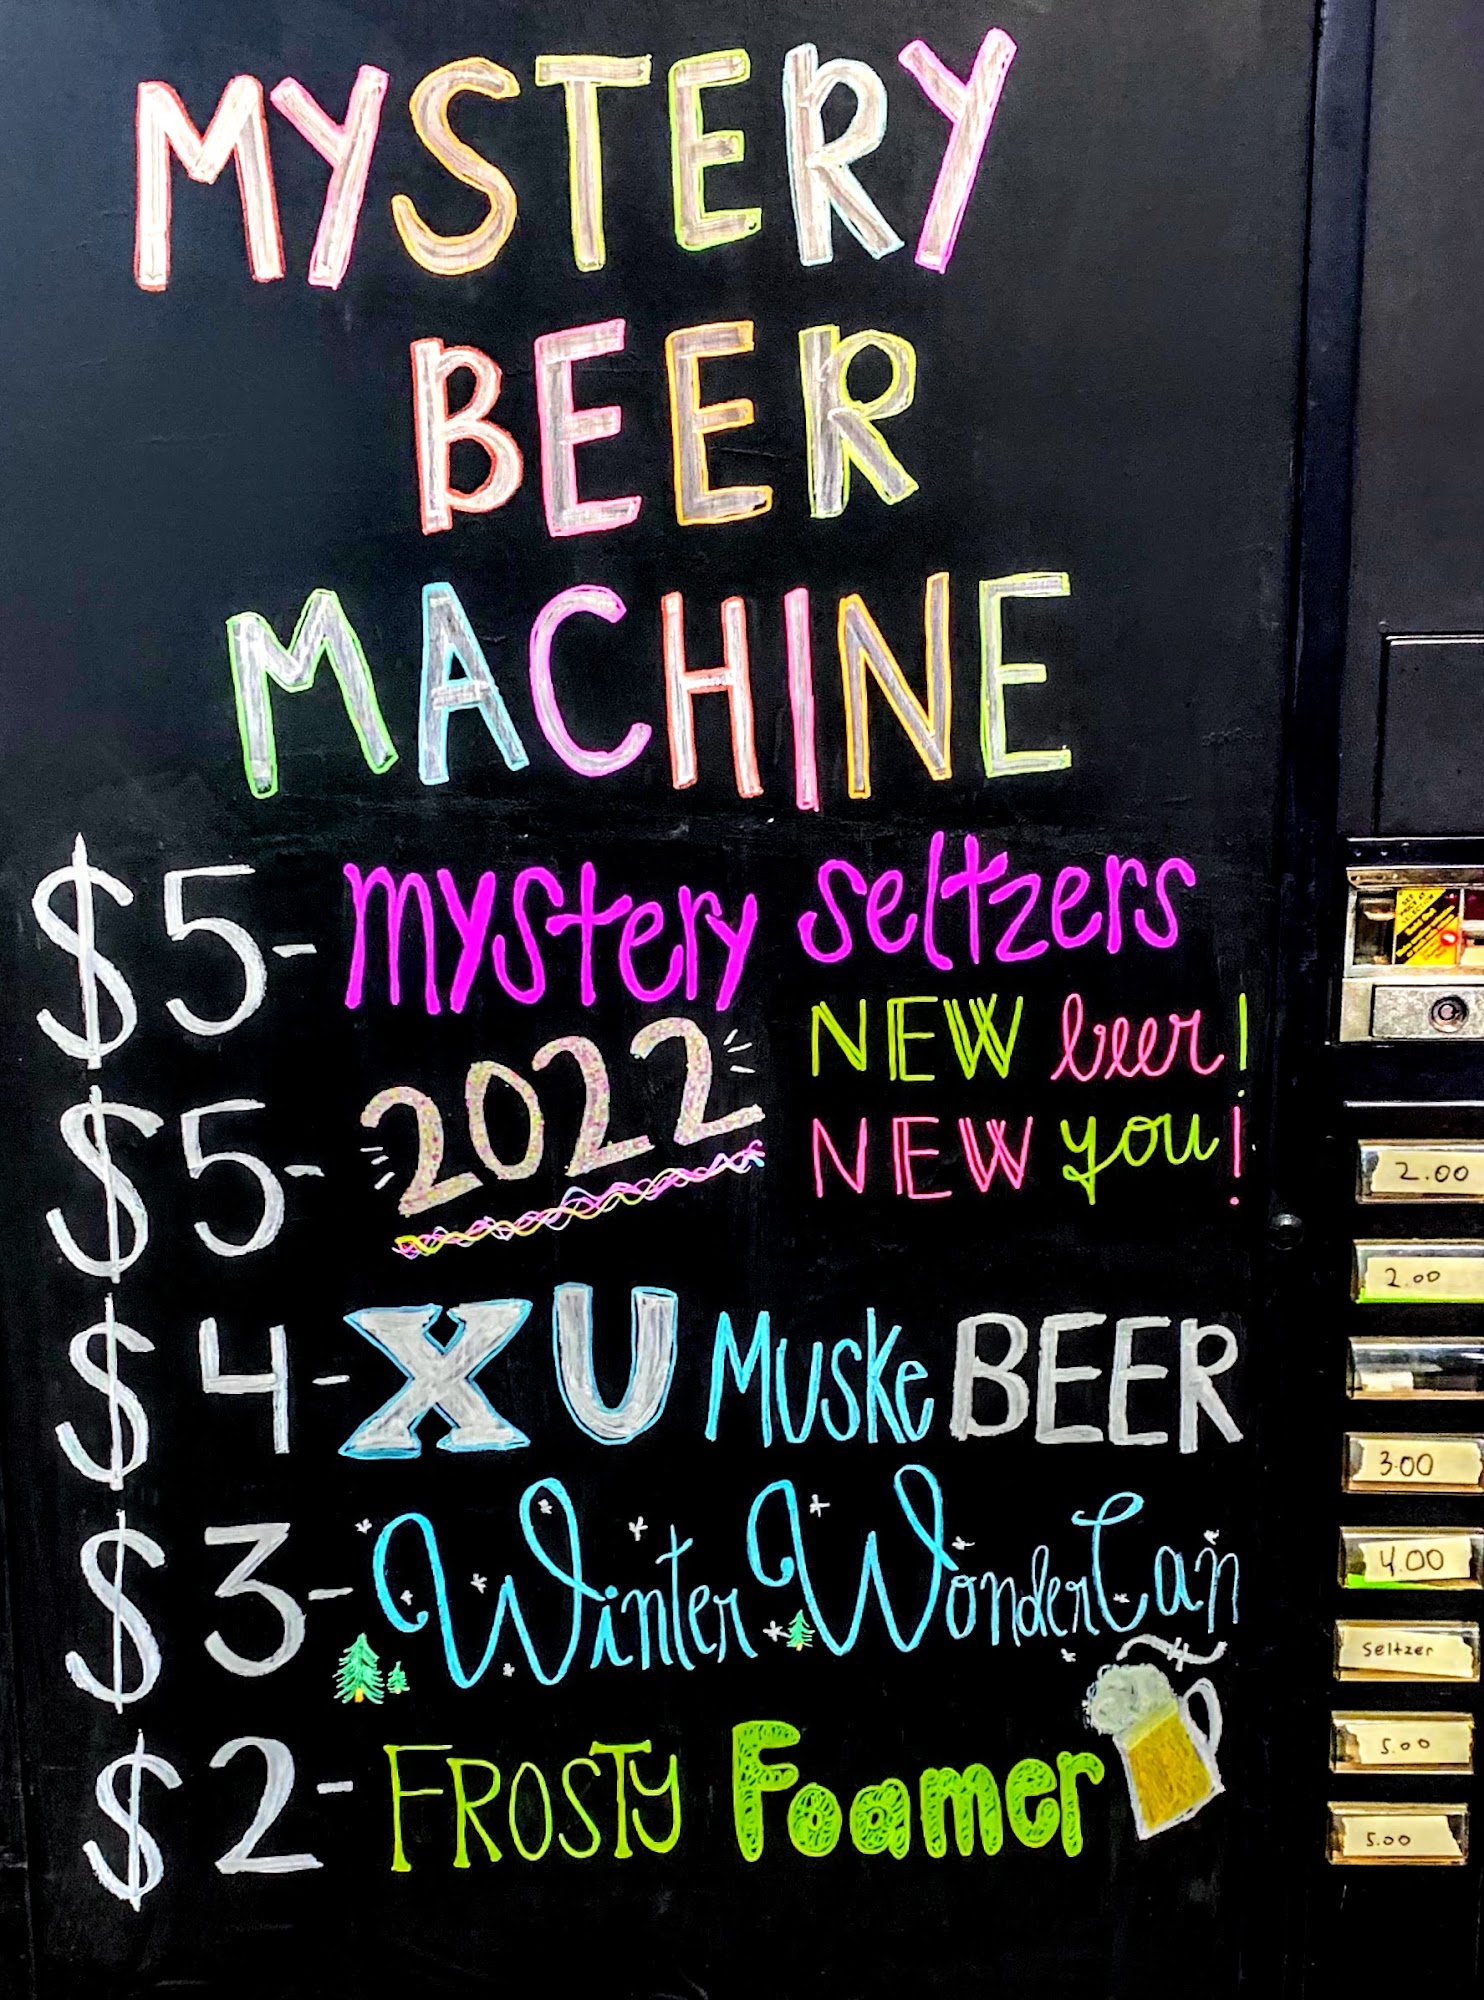 MYSTERY
BEER
MACHINE
$5- mystery seltzers
$5- 2022 NEW beer!
NEW you!
$4- XU MUSKe BEER
$3- Winter WonderCan
$2- FROSTy Foamer
2.00
2.00
3.00
4.00
seltzer
5.00
5.00